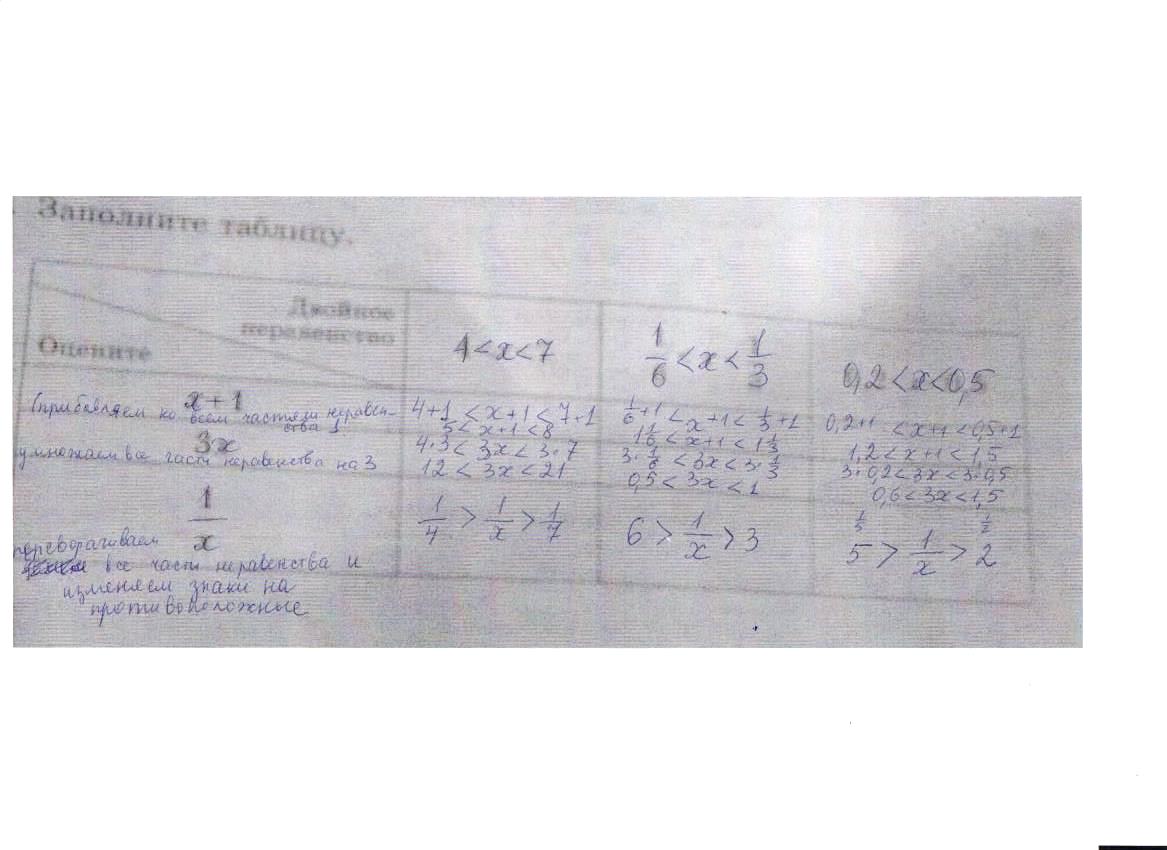 Заполните таблицу.
Двойное
неравенство
Оцените
4 < x < 7
1/6 < x < 1/3
0,2 < x < 0,5
x + 1
(прибавляем ко всем частям неравен-
ства 1
4+1 < x+1 < 7+1
5 < x+1 < 8
1/6 +1 < x+1 < 1/3 +1
1 1/6 < x+1 < 1 1/3
0,2+1 < x+1 < 0,5+1
1,2 < x+1 < 1,5
3x
умножаем все части неравенства на 3
4·3 < 3x < 3·7
12 < 3x < 21
3·1/6 < 3x < 3·1/3
0,5 < 3x < 1
3·0,2 < 3x < 3·0,5
0,6 < 3x < 1,5
1/x
переворачиваем
все части неравенства и
изменяем знаки на
противоположные
1/4 > 1/x > 1/7
6 > 1/x > 3
1/5 1/2
5 > 1/x > 2